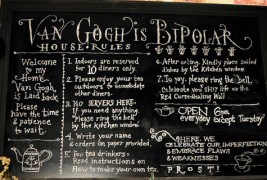 VAN GOGH IS BIPOLAR
HOUSE RULES
Welcome
to my
Home.
Van Gogh
is Laid
back.
Please
have the
time &
patience
to wait.
1. Indoors are reserved
for 10 diners only.
2. Please enjoy your tea
outdoors to accomodate
other diners.
3. NO SERVERS HERE
If you need anything
Please ring the bell
by the kitchen window
4. Write your name
& orders on paper provided.
5. For tea drinkers -
Read instructions on
How to make your own tea.
6. After eating, Kindly place soiled
dishes by the Kitchen window
7. To pay, please ring the bell.
Celebrate your short life on the
Red Curse-Healing Wall
OPEN 6pm
everyday except Tuesday
WHERE WE
CELEBRATE OUR IMPERFECTIONS
& EMBRACE FLAWS
& WEAKNESSES
PROST!